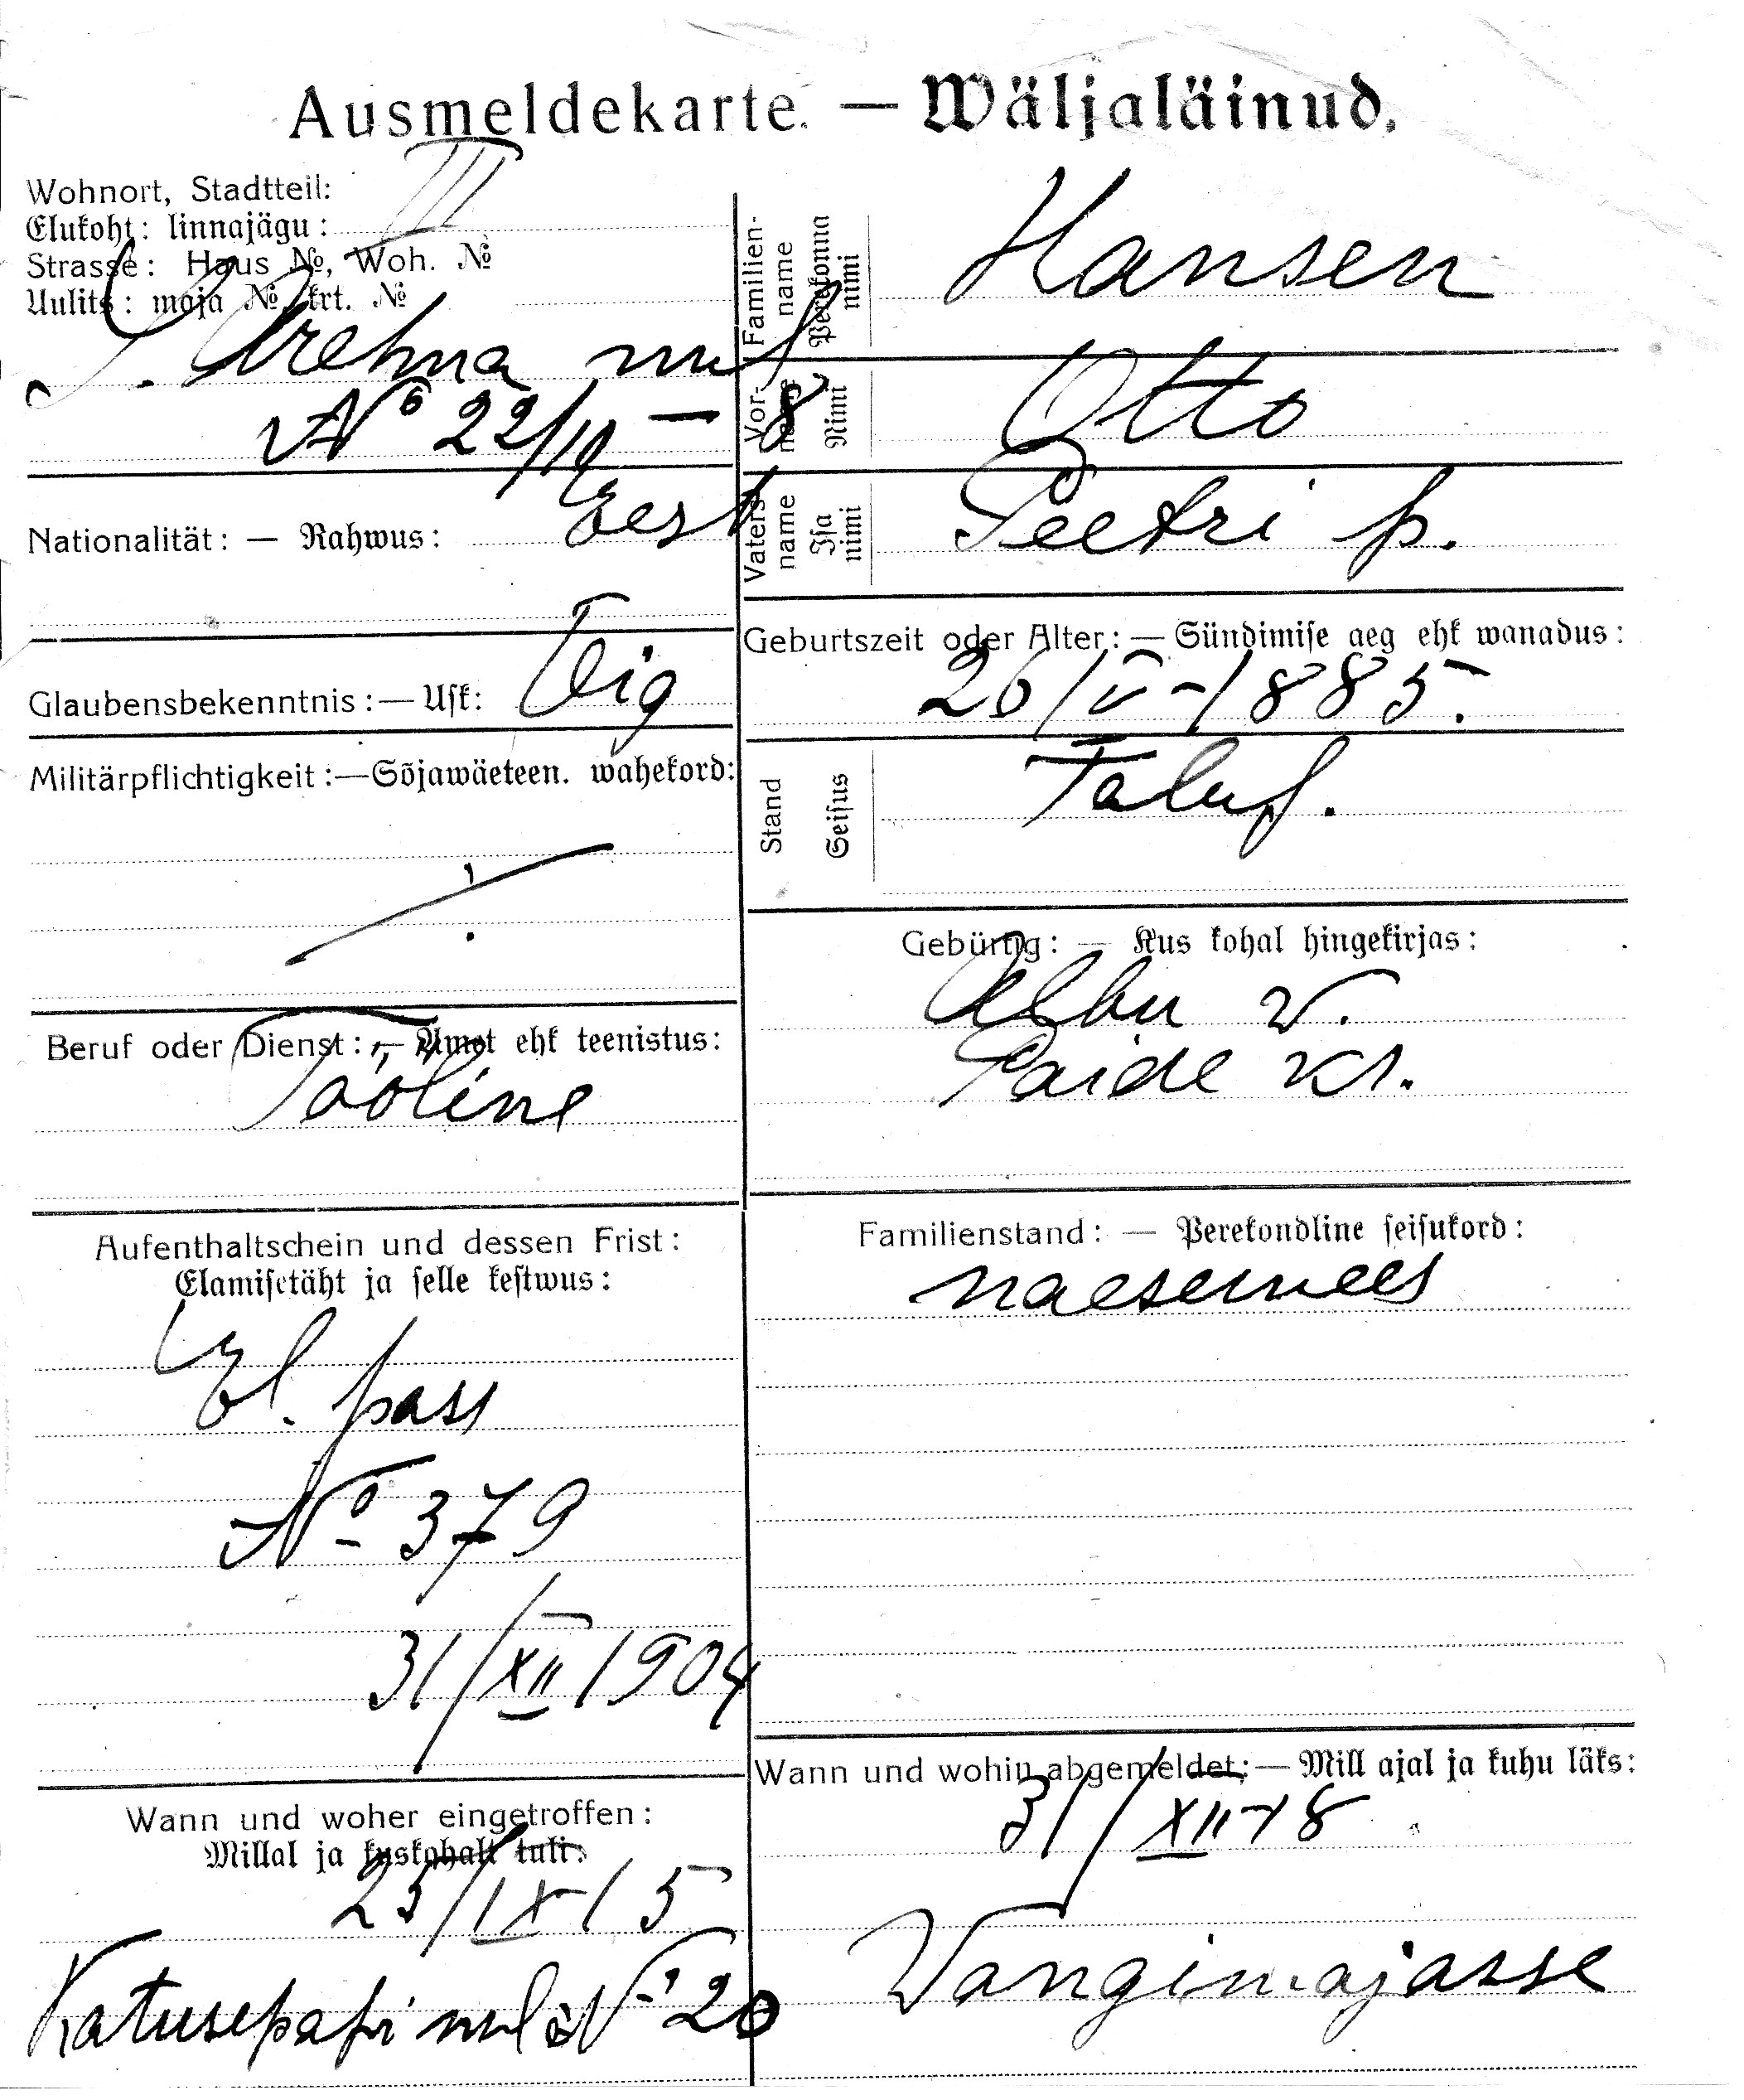 Ausmeldekarte. — Wäljaläinud.
Wohnort, Stadtteil:
Elukoht: linnajägu: III
Strasse: Haus №, Woh. №
Uulits: maja № krt. №
№ 22/19 — 8
Nationalität: — Rahwus: Eest
Glaubensbekenntnis: — Usk: Õig
Militärpflichtigkeit: — Sõjawäeteen. wahekord:
Beruf oder Dienst: — Amet ehk teenistus:
Tööline
Aufenthaltschein und dessen Frist:
Elamisetäht ja selle kestwus:
El. pass
№ 379
31/XII 1904
Wann und woher eingetroffen:
Millal ja kuskohalt tuli:
25/IX 15
Katusepapi uul № 20
Familien-name Perekonna nimi Hansen
Vor-name Nimi Otto
Vaters name Isa nimi Peetri p.
Geburtszeit oder Alter: — Sündimise aeg ehk wanadus:
26/V-1885.
Stand Seisus Talup.
Gebürtig: — Kus kohal hingekirjas:
Albu v.
Paide kr.
Familienstand: — Perekondline seisukord:
naesemees
Wann und wohin abgemeldet: — Mill ajal ja kuhu läks:
31/XII 18
Vangimajasse